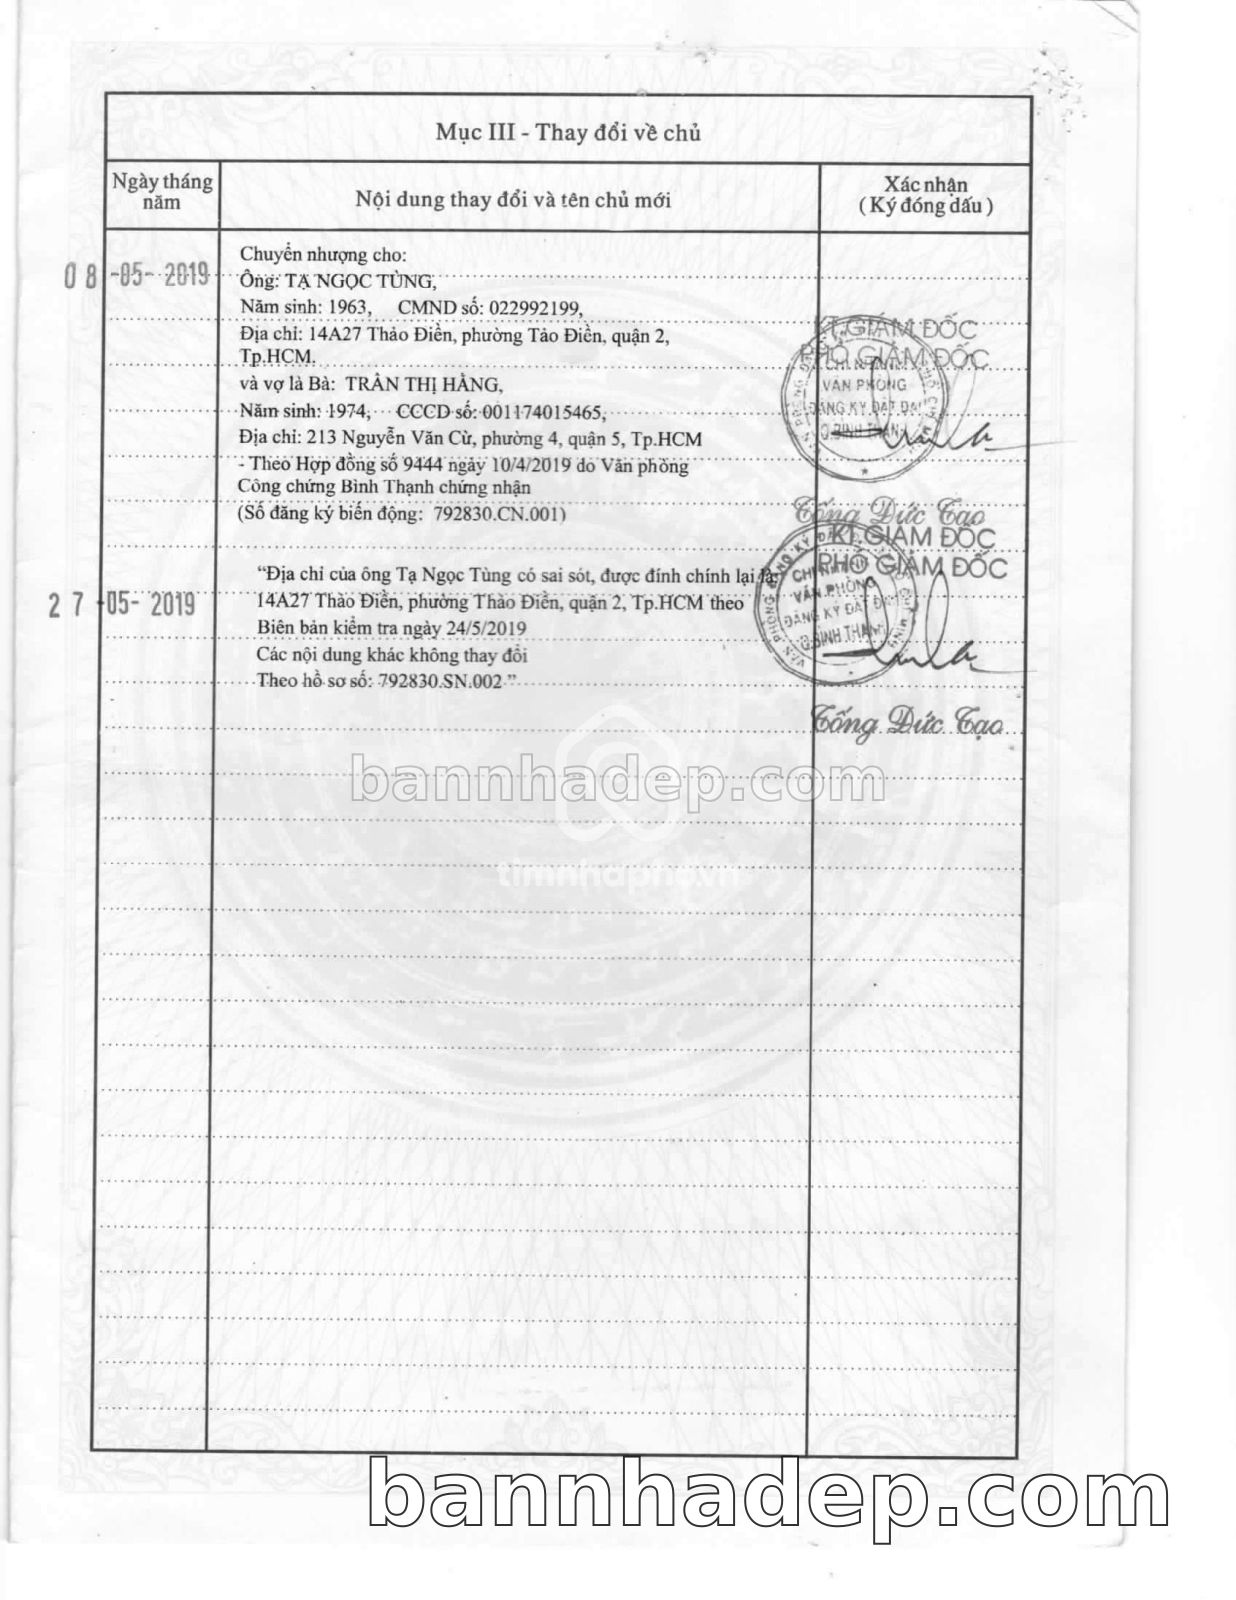 Mục III - Thay đổi về chủ
Ngày tháng
năm
Nội dung thay đổi và tên chủ mới
Xác nhận
( Ký đóng dấu )
08 -05- 2019
Chuyển nhượng cho:
Ông: TẠ NGỌC TÙNG,
Năm sinh: 1963, CMND số: 022992199,
Địa chỉ: 14A27 Thảo Điền, phường Tảo Điền, quận 2,
Tp.HCM.
và vợ là Bà: TRẦN THỊ HẰNG,
Năm sinh: 1974, CCCD số: 001174015465,
Địa chỉ: 213 Nguyễn Văn Cừ, phường 4, quận 5, Tp.HCM
- Theo Hợp đồng số 9444 ngày 10/4/2019 do Văn phòng
Công chứng Bình Thạnh chứng nhận
(Số đăng ký biến động: 792830.CN.001)
KT.GIÁM ĐỐC
PHÓ GIÁM ĐỐC
CHI NHÁNH
VĂN PHÒNG
ĐĂNG KÝ ĐẤT ĐAI
Q.BÌNH THẠNH
Tống Đức Tạo
27 -05- 2019
“Địa chỉ của ông Tạ Ngọc Tùng có sai sót, được đính chính lại là:
14A27 Thảo Điền, phường Thảo Điền, quận 2, Tp.HCM theo
Biên bản kiểm tra ngày 24/5/2019
Các nội dung khác không thay đổi
Theo hồ sơ số: 792830.SN.002 ”
KT.GIÁM ĐỐC
PHÓ GIÁM ĐỐC
CHI NHÁNH
VĂN PHÒNG
ĐĂNG KÝ ĐẤT ĐAI
Q.BÌNH THẠNH
Tống Đức Tạo
bannhadep.com
timnhapho.vn
bannhadep.com